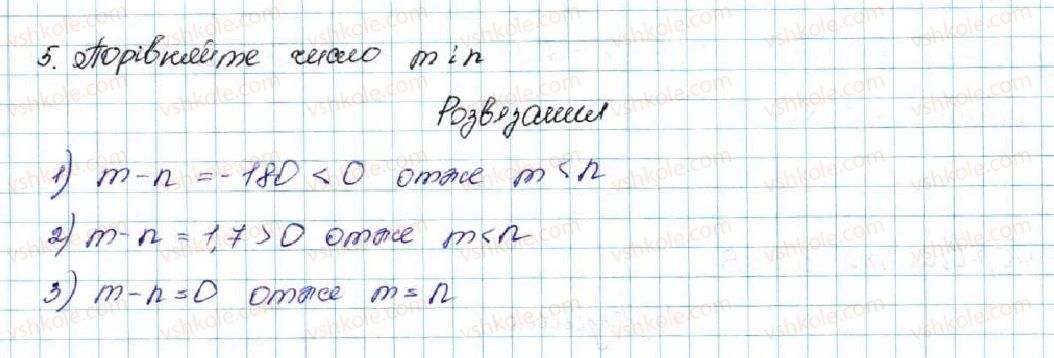 5. Порівняйте число m i n
Розвязання
1) m - n = - 180 < 0 отже m < n
2) m - n = 1,7 > 0 отже m < n
3) m - n = 0 отже m = n